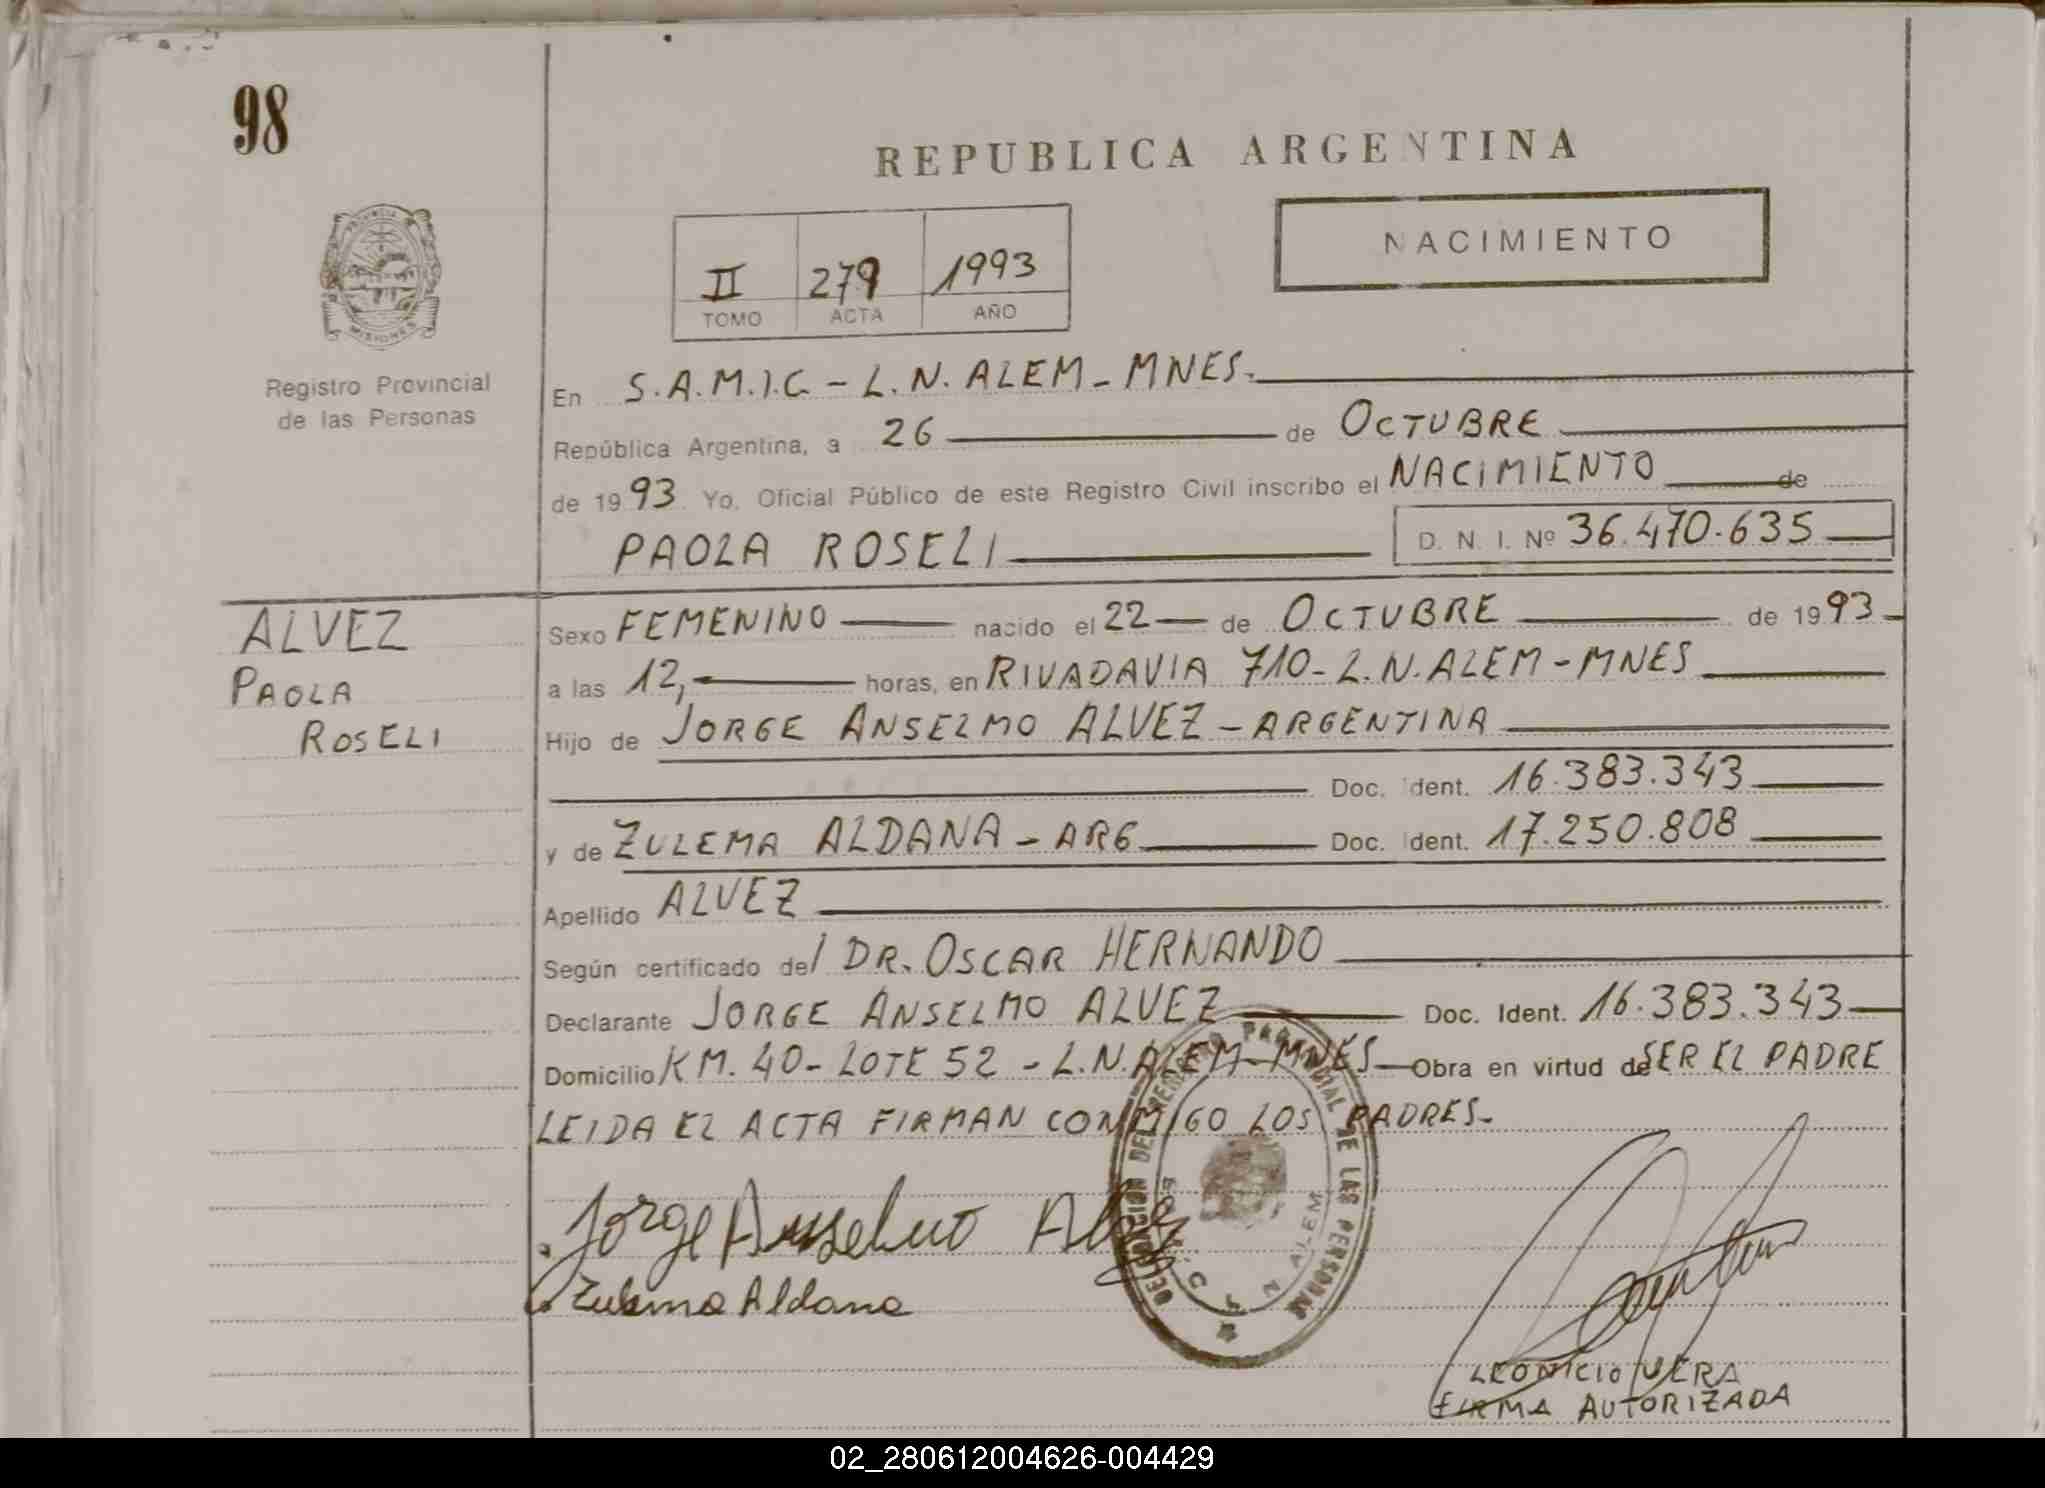 98
REPUBLICA ARGENTINA
NACIMIENTO
II 279 1993
TOMO ACTA AÑO
PROVINCIA
MISIONES
Registro Provincial
de las Personas
En S.A.M.I.C. - L.N. ALEM - MNES.
República Argentina, a 26 de OCTUBRE
de 1993 Yo, Oficial Público de este Registro Civil inscribo el NACIMIENTO de
PAOLA ROSELI D. N. I. Nº 36.470.635
ALVEZ
PAOLA
ROSELI
Sexo FEMENINO nacido el 22 de OCTUBRE de 1993
a las 12, horas, en RIVADAVIA 710 - L.N. ALEM - MNES
Hijo de JORGE ANSELMO ALVEZ - ARGENTINA
Doc. Ident. 16.383.343
y de ZULEMA ALDANA - ARG Doc. Ident. 17.250.808
Apellido ALVEZ
Según certificado del DR. OSCAR HERNANDO
Declarante JORGE ANSELMO ALVEZ Doc. Ident. 16.383.343
Domicilio KM. 40 - LOTE 52 - L.N. ALEM - MNES Obra en virtud de SER EL PADRE
LEIDA EL ACTA FIRMAN CONMIGO LOS PADRES.
Jorge Anselmo Alvez
Zulema Aldana
DELEGACION DEL REGISTRO PROVINCIAL DE LAS PERSONAS
N. ALEM
LEONICIO VERA
FIRMA AUTORIZADA
02_280612004626-004429